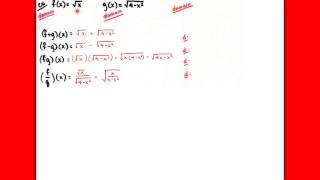 ex. f(x)=√x g(x)=√4-x²
domain domain
(f+g)(x) = √x + √4-x² d:
(f-g)(x) = √x - √4-x² d:
(fg)(x) = (√x)(√4-x²) = √x(4-x²) = √4x-x³ d:
(f/g)(x) = √x/√4-x² = √x/4-x² d: